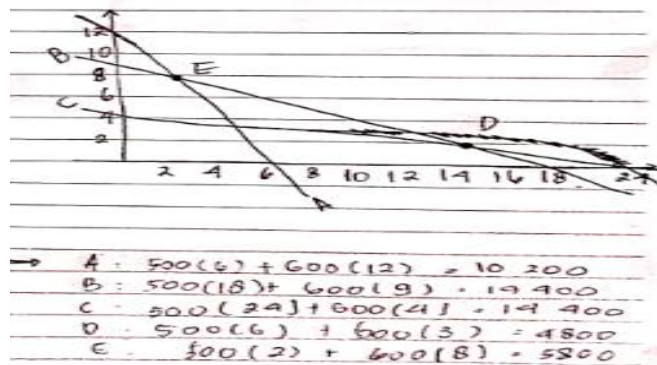 12
B 10
8 E
6
C 4
2 D
2 4 6 8 10 12 14 16 18 24
A
→ A = 500(6) + 600(12) = 10 200
B = 500(18) + 600(9) = 14 400
C = 500(24) + 600(4) = 14 400
D = 500(6) + 600(3) = 4800
E = 500(2) + 600(8) = 5800